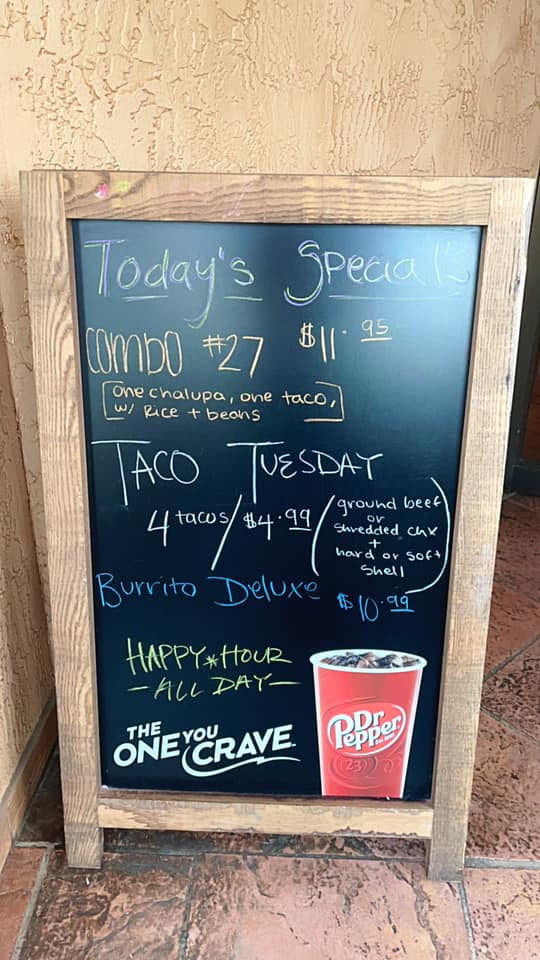 Today's Special's
COMBO #27 $11.95
[One chalupa, one taco,
w/ Rice + beans]
TACO TUESDAY
4 tacos/$4.99/(ground beef
or
shredded chx
+
hard or soft
shell)
Burrito Deluxe $10.99
HAPPY*HOUR
-ALL DAY-
THE
ONE YOU
CRAVE.
Dr
Pepper
23